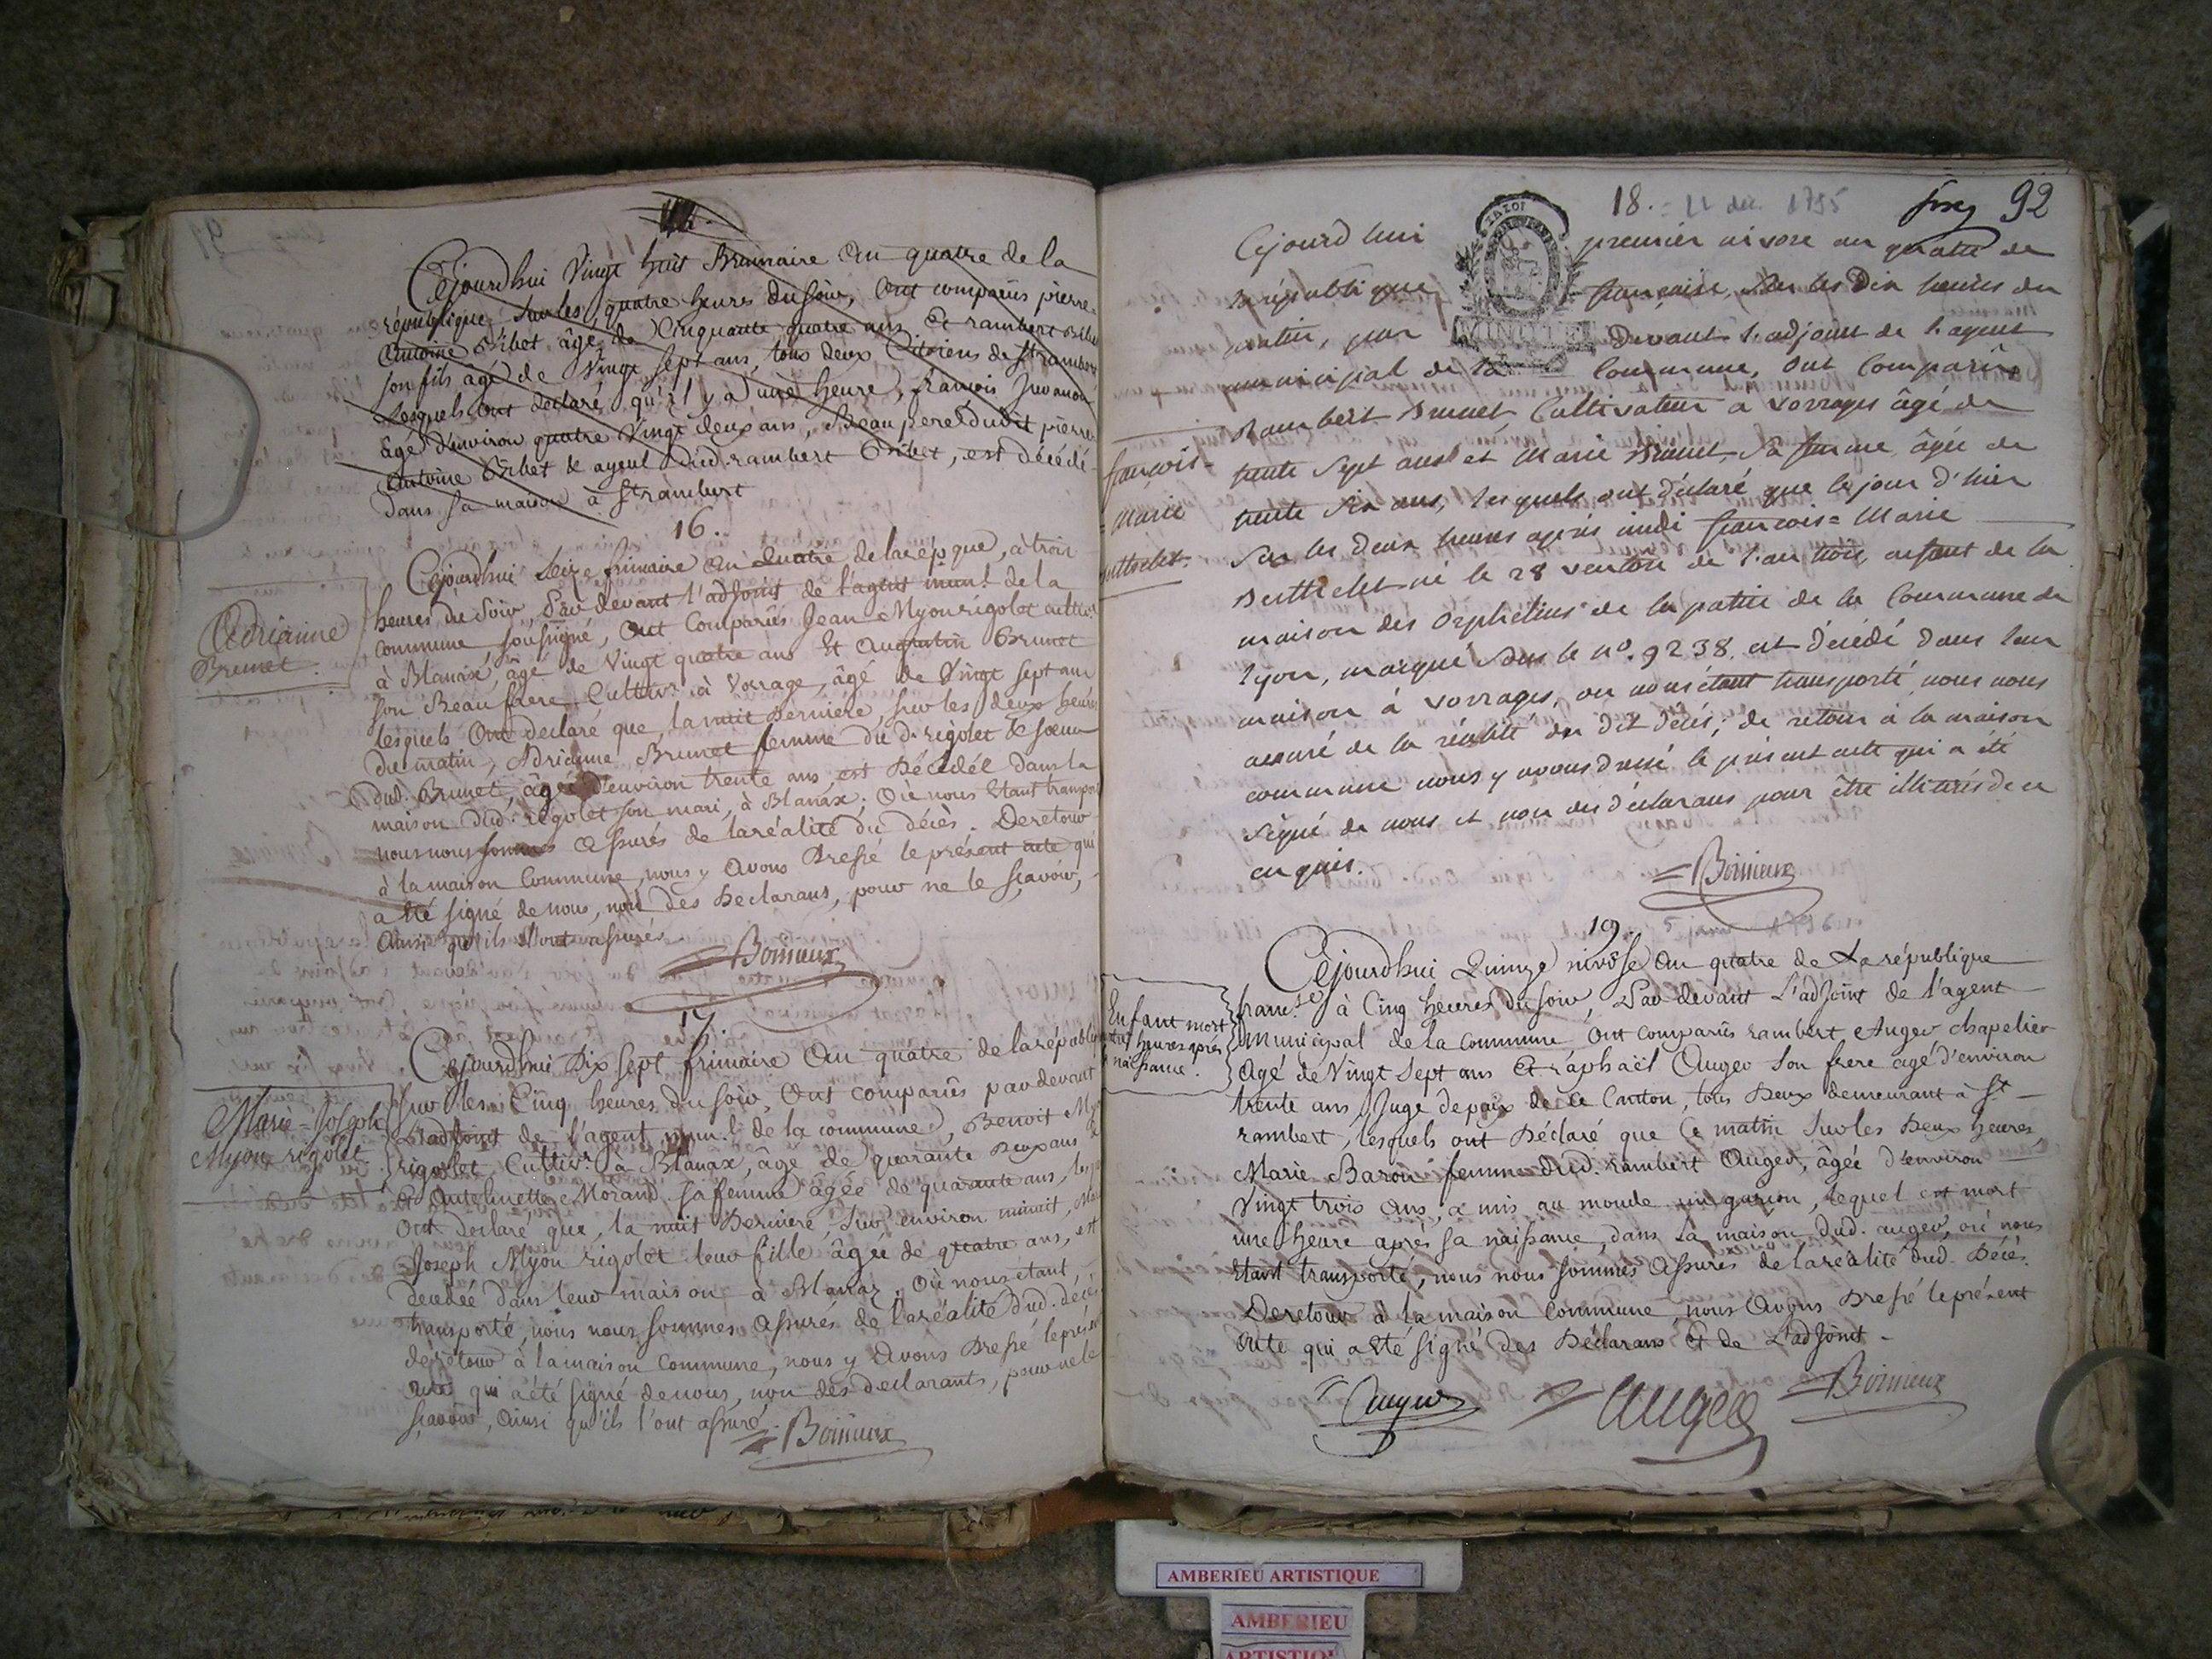 Cejourdhui Vingt huit Brumaire an quatre de la
république Sur les quatre heures du soir, Ont comparus pierre
Antoine Bribet âgé de Cinquante quatre ans Et rambert
son fils âgé de Vingt sept ans, tous deux Citoiens de St rambert
Lesquels ont déclaré, qu'il y a une heure, francois Juvanon
âgé d'environ quatre Vingt deux ans, Beau pere dudit pierre
Antoine Bribet & ayeul dud. rambert Bribet, est décédé
dans sa maison à St rambert
16.
Adrianne
Brunet
Cejourd'hui Seize frimaire an quatre de la repque, à trois
heures du Soir, Par devant l'adjoint de l'agent mun.l de la
commune soussigné, Ont Comparûs Jean Myon rigolet cultivr
à Blanax, âgé de Vingt quatre ans Et Augustin Brunet
son Beau frere, Cultivr. à Vorrage, âgé de Vingt sept ans
lesquels Ont declaré que, la nuit Derniére, sur les deux heures
du matin, Adrianne Brunet femme du d. rigolet & soeur
dud. Brunet, âgée d'environ trente ans, est Décédée dans la
maison dud. rigolet son mari, à Blanax; Où nous Etant transpor
nous nous sommes assurés de la réalité du décès. De retour
à la maison Commune, nous y Avons Dressé le présent acte qui
a été signé de nous, non des Declarans, pour ne le sçavoir,
Ainsi qu'ils l'ont assurés.
Boinieux
17.
Marie-Joseph
Myon rigolet
Cejourdhui Dix sept frimaire An quatre de la républi
Sur les Cinq heures du soir, Ont comparûs par devant
L'adjoint de l'agent mun.l de la commune, Benoit My
rigolet Cultivr. à Blanax, âgé de quarante Deux ans &
Antelmette Morand sa femme âgée de quarante ans, les
Ont declaré que, la nuit Derniere, Sur environ minuit, Ma
Joseph Myon rigolet leur fille âgée de quatre ans, est
Décédée dans leur maison à Blanax. Où nous etant
transporté, nous nous sommes assurés de la réalité dud. décès
de retour à la maison Commune, nous y avons Dressé le prés
acte qui a été signé de nous, non des declarants, pour ne le
sçavoir, Ainsi qu'ils l'ont assuré.
Boinieux
18. 22 dec. 1795
92
françois=
Marie
Berthelet.
Cejourd'hui premier nivose an quatre de
la république française, sur les Dix heures du
matin, par Devant l'adjoint de l'agent
municipal de la Commune, Ont Comparûs
Rambert Brunet Cultivateur à Vorrages âgé de
trente Sept ans et Marie Brunet, sa femme âgée de
trente Six ans, lesquels ont déclaré que le jour d'hier
Sur les Deux heures aprés midi françois=Marie
Berthelet né le 28 ventôse de l'an trois, enfant de la
maison des orphelins de la patrie de la Commune de
Lyon, marqué Sous le n°. 9238. est décédé dans leur
maison à vorrages, ou nous étant transporté, nous nous
assuré de la réalité du dit décès; de retour à la maison
commune nous y avons dressé le présent acte qui a été
Signé de nous et non des déclarans pour être illiterés de ce
enquis.
Boinieux
19.
Enfant mort
heures après
naissance.
Cejourdhui Quinze nivôse an quatre de La république
franc.se à Cinq heures du soir, Par devant L'adjoint de l'agent
Municipal de la Commune Ont comparûs rambert Auger chapelier
Agé de Vingt Sept ans Et raphaël Auger Son frere agé d'environ
trente ans, Juge de paix de ce Canton, tous Deux demeurant à St
rambert, lesquels ont Déclaré que Ce matin Sur les Deux heures
Marie Baron femme dud. rambert Auger, âgée d'environ
Vingt trois ans, a mis au monde un garçon, lequel est mort
une heure aprés sa naissance, dans La maison dud. auger, où nous
Etant transporté, nous nous sommes Assurés de la réalité dud. Décès.
De retour à la maison Commune, nous Avons Dressé le présent
Acte qui a été signé des Déclarans & de L'adjoint.
Auger
Auger
Boinieux
AMBERIEU ARTISTIQUE
AMBERIEU
ARTISTIQUE